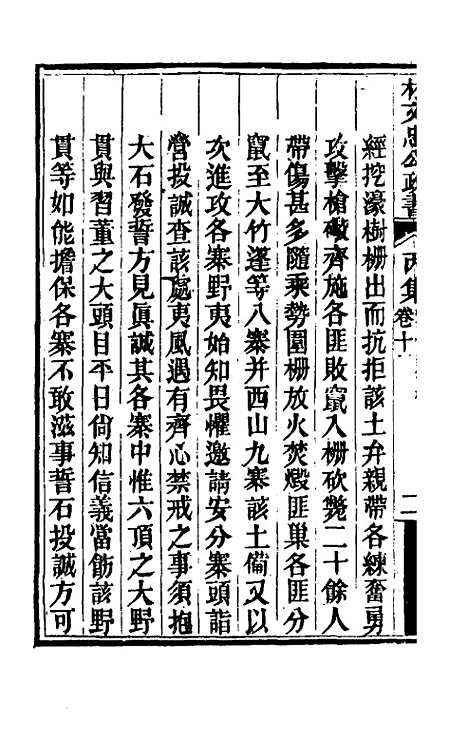 林文忠公政書 丙集 卷十 二
經挖濠樹柵出而抗拒該土弁親帶各練奮勇
攻擊槍礮齊施各匪敗竄入柵砍斃二十餘人
帶傷甚多隨乘勢圍柵放火焚燬匪巢各匪分
竄至大竹蓬等八寨并西山九寨該土備又以
次進攻各寨野夷始知畏懼邀請安分寨頭詣
營投誠查該處夷風遇有齊心禁戒之事須抱
大石發誓方見眞誠其各寨中惟六頂之大野
貫與習董之大頭目平日尙知信義當飭該野
貫等如能擔保各寨不敢滋事誓石投誠方可